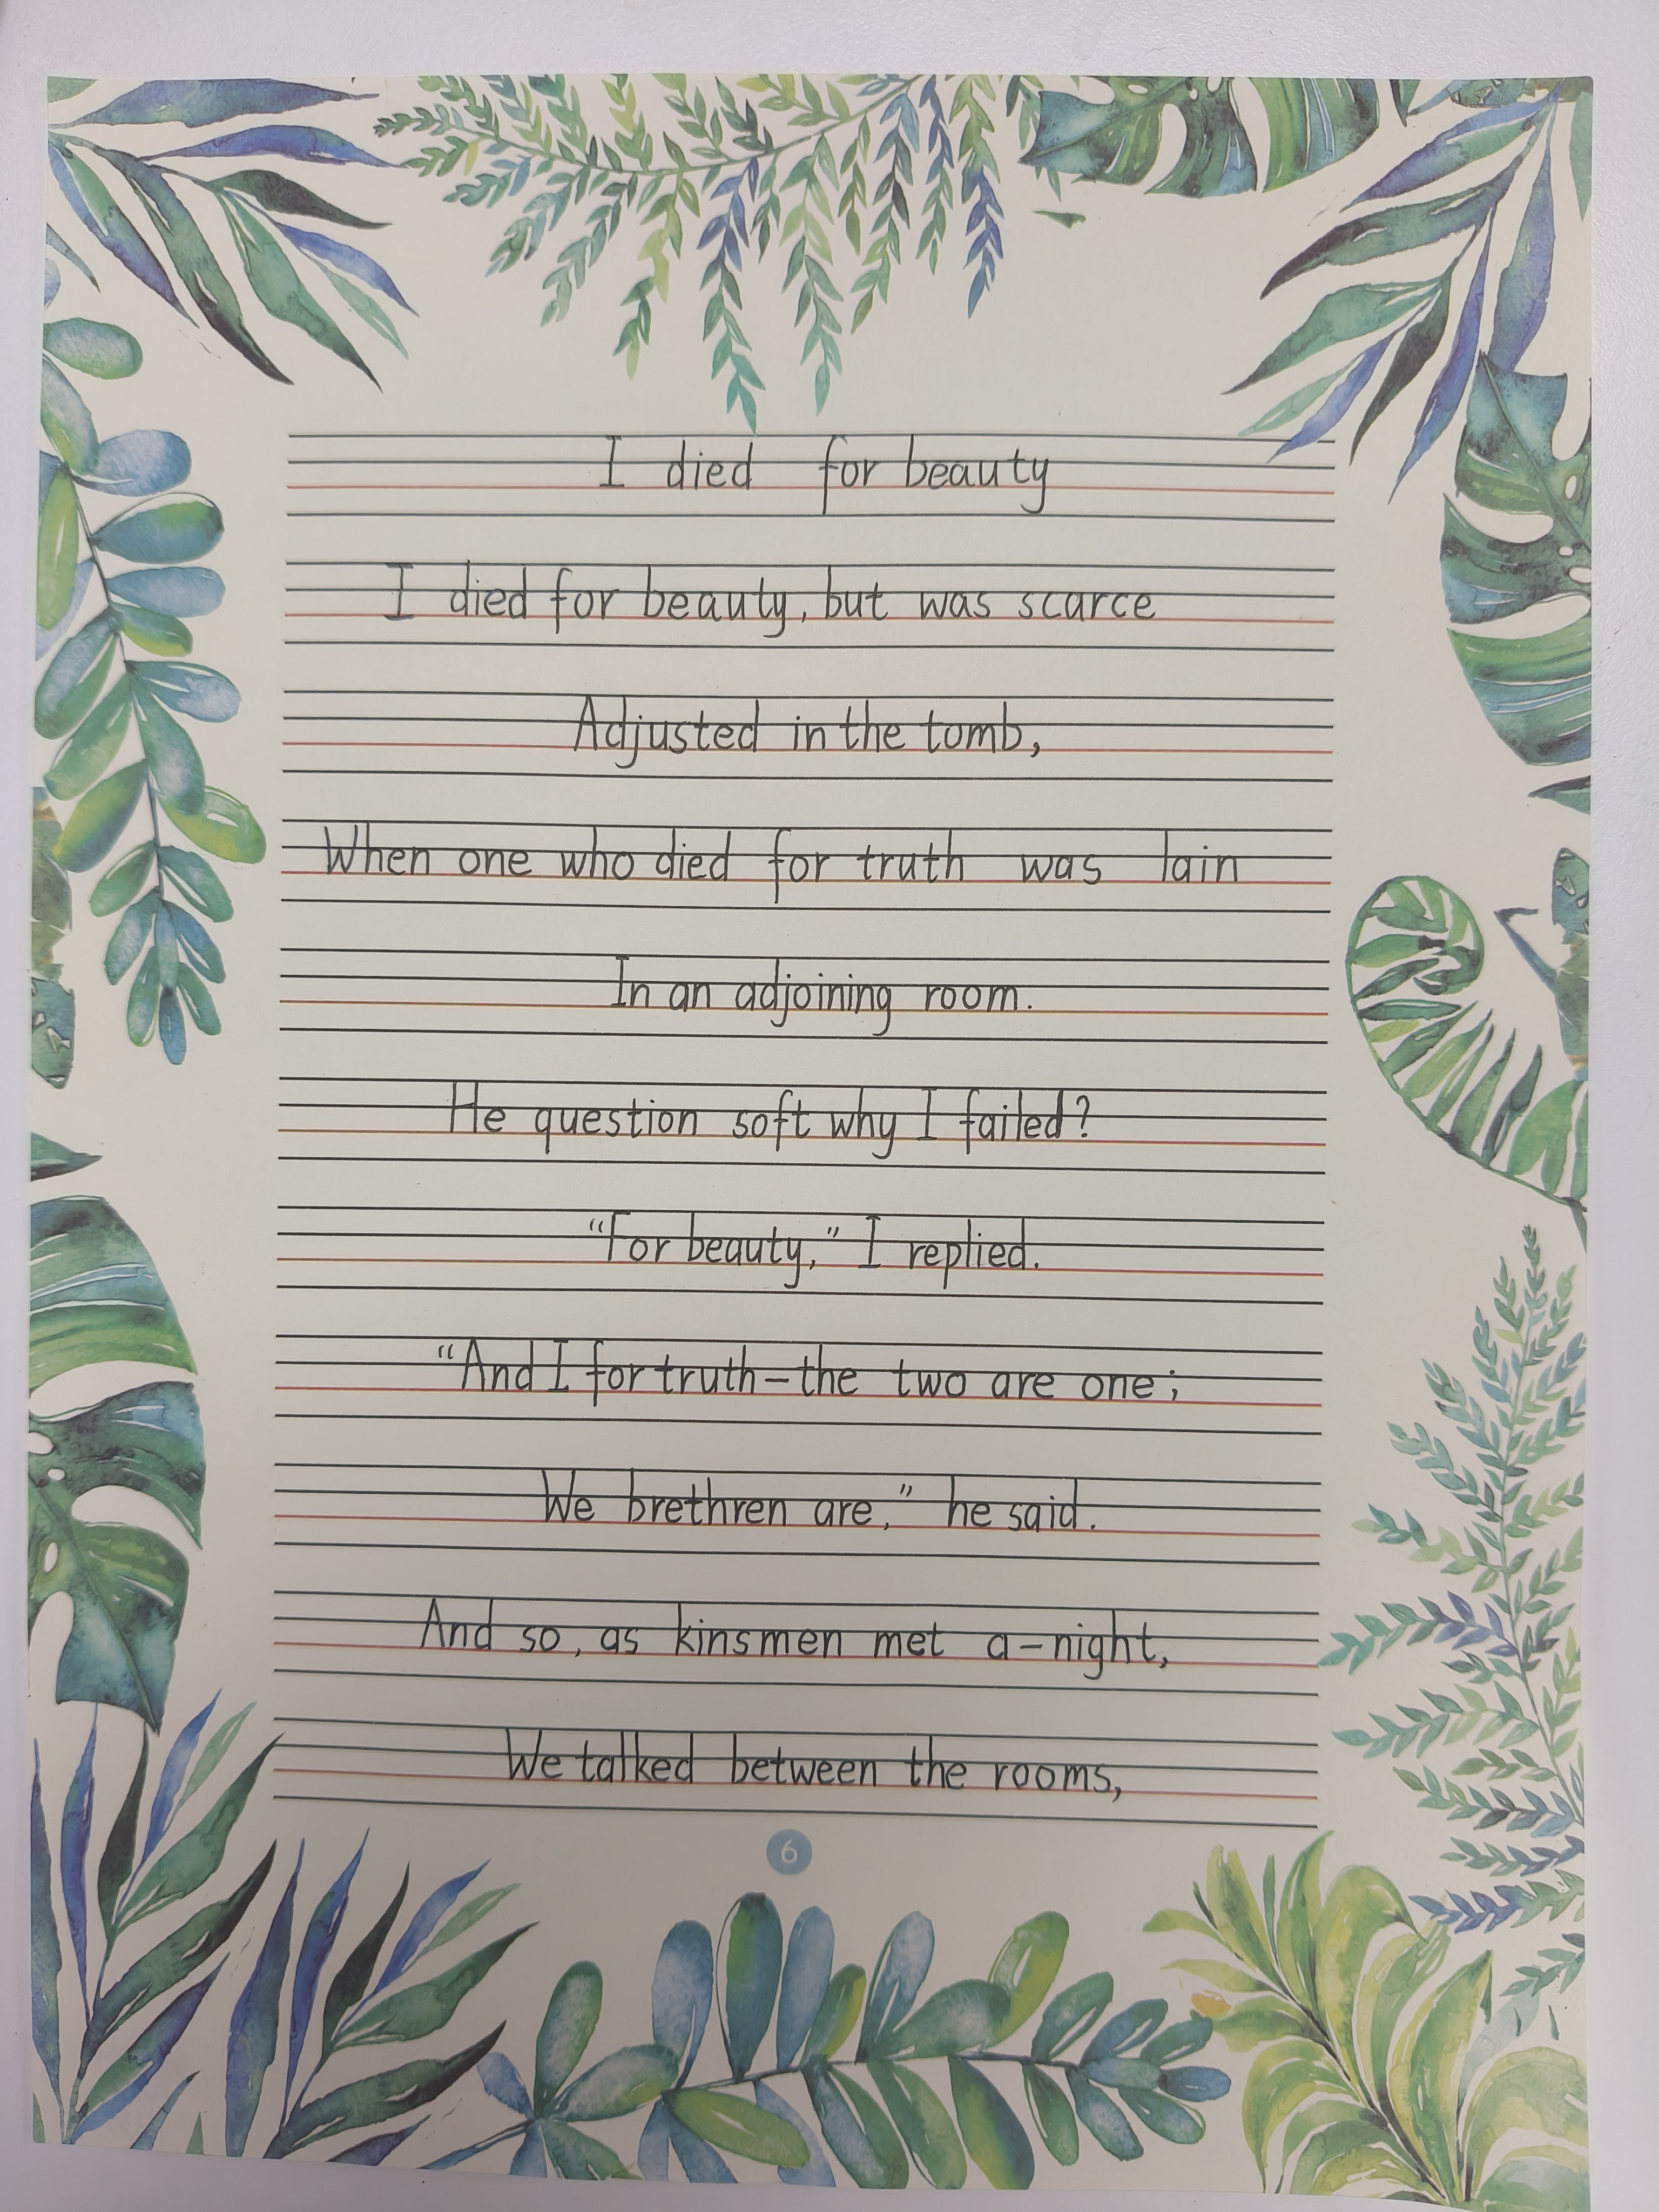 I died for beauty
I died for beauty, but was scarce
Adjusted in the tomb,
When one who died for truth was lain
In an adjoining room.
He question soft why I failed?
“For beauty,” I replied.
“And I for truth—the two are one;
We brethren are,” he said.
And so, as kinsmen met a-night,
We talked between the rooms,
6